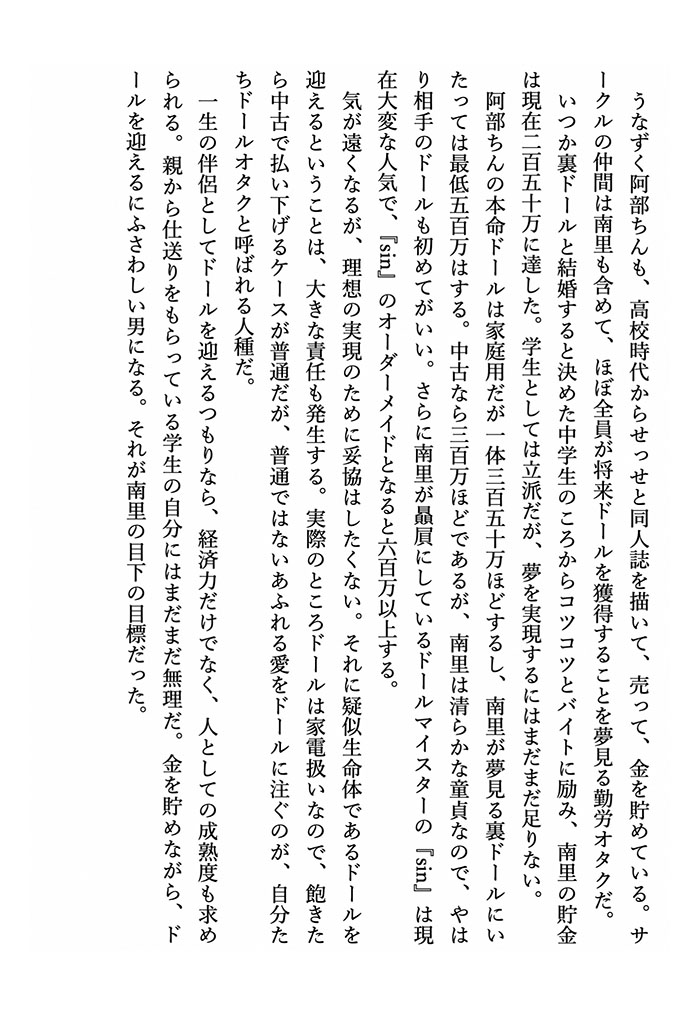 うなずく阿部ちんも、高校時代からせっせと同人誌を描いて、売って、金を貯めている。サ
ークルの仲間は南里も含めて、ほぼ全員が将来ドールを獲得することを夢見る勤労オタクだ。
いつか裏ドールと結婚すると決めた中学生のころからコツコツとバイトに励み、南里の貯金
は現在二百五十万に達した。学生としては立派だが、夢を実現するにはまだまだ足りない。
阿部ちんの本命ドールは家庭用だが一体三百五十万ほどするし、南里が夢見る裏ドールにい
たっては最低五百万はする。中古なら三百万ほどであるが、南里は清らかな童貞なので、やは
り相手のドールも初めてがいい。さらに南里が贔屓にしているドールマイスターの『sin』は現
在大変な人気で、『sin』のオーダーメイドとなると六百万以上する。
気が遠くなるが、理想の実現のために妥協はしたくない。それに疑似生命体であるドールを
迎えるということは、大きな責任も発生する。実際のところドールは家電扱いなので、飽きた
ら中古で払い下げるケースが普通だが、普通ではないあふれる愛をドールに注ぐのが、自分た
ちドールオタクと呼ばれる人種だ。
一生の伴侶としてドールを迎えるつもりなら、経済力だけでなく、人としての成熟度も求め
られる。親から仕送りをもらっている学生の自分にはまだまだ無理だ。金を貯めながら、ド
ールを迎えるにふさわしい男になる。それが南里の目下の目標だった。